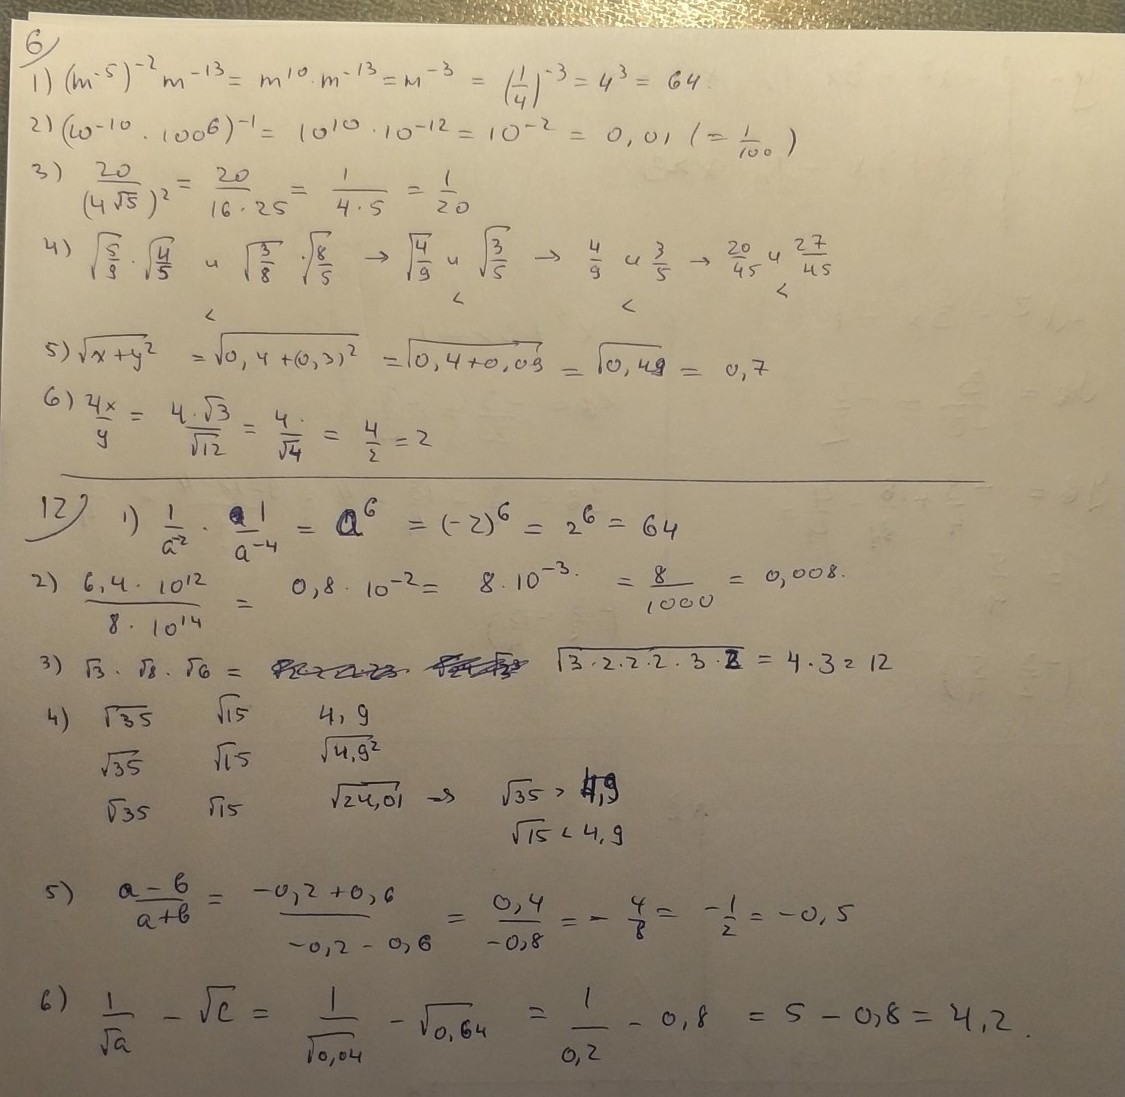 6)
1) (m⁻⁵)⁻² m⁻¹³ = m¹⁰ · m⁻¹³ = m⁻³ = (1/4)⁻³ = 4³ = 64
2) (10⁻¹⁰ · 100⁶)⁻¹ = 10¹⁰ · 10⁻¹² = 10⁻² = 0,01 (= 1/100)
3) 20/(4√5)² = 20/(16 · 25) = 1/(4 · 5) = 1/20
4) √(5/9) · √(4/5) и √(3/8) · √(8/5) → √(4/9) и √(3/5) → 4/9 и 3/5 → 20/45 и 27/45
< < < <
5) √(x+y²) = √(0,4+(0,3)²) = √(0,4+0,09) = √0,49 = 0,7
6) 4x/y = 4·√3/√12 = 4/√4 = 4/2 = 2
12)
1) 1/a⁻² · 1/a⁻⁴ = a⁶ = (-2)⁶ = 2⁶ = 64
2) (6,4 · 10¹²)/(8 · 10¹⁴) = 0,8 · 10⁻² = 8 · 10⁻³ = 8/1000 = 0,008.
3) √3 · √8 · √6 = √(3·2·2·2·3·2) = 4·3 = 12
4) √35 √15 4,9
√35 √15 √(4,9²)
√35 √15 √24,01 → √35 > 4,9
√15 < 4,9
5) (a-б)/(a+б) = (-0,2+0,6)/(-0,2-0,6) = 0,4/-0,8 = -4/8 = -1/2 = -0,5
6) 1/√a - √c = 1/√0,04 - √0,64 = 1/0,2 - 0,8 = 5 - 0,8 = 4,2.